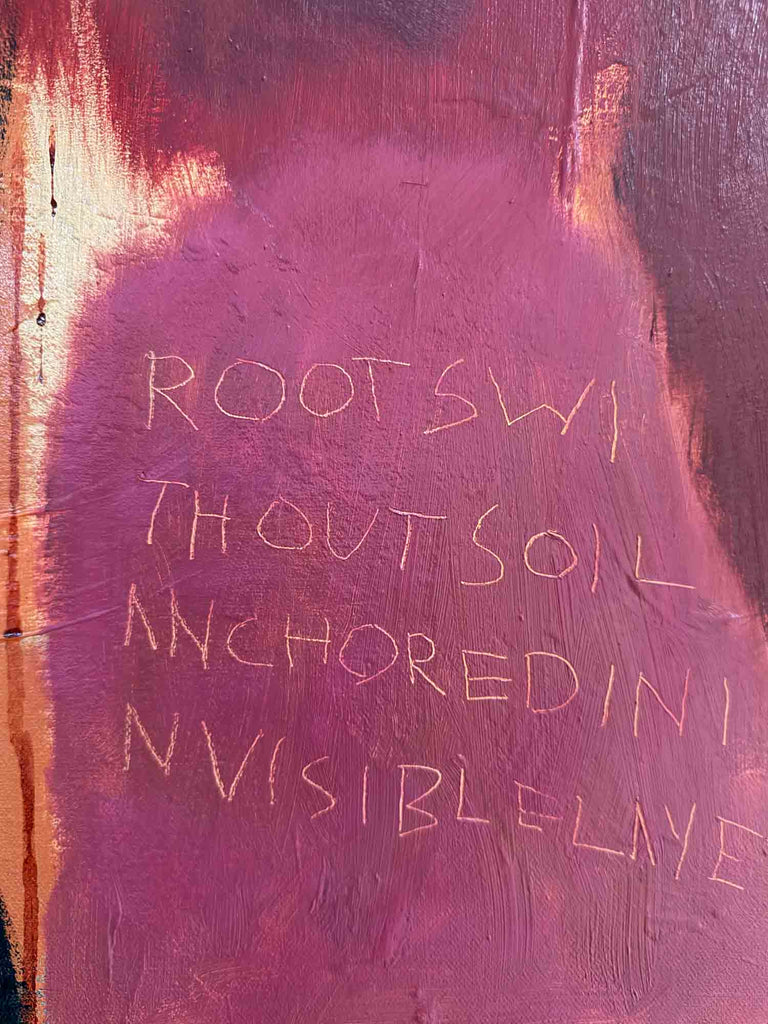 ROOTSWI
THOUTSOIL
ANCHOREDINI
NVISIBLELAYE